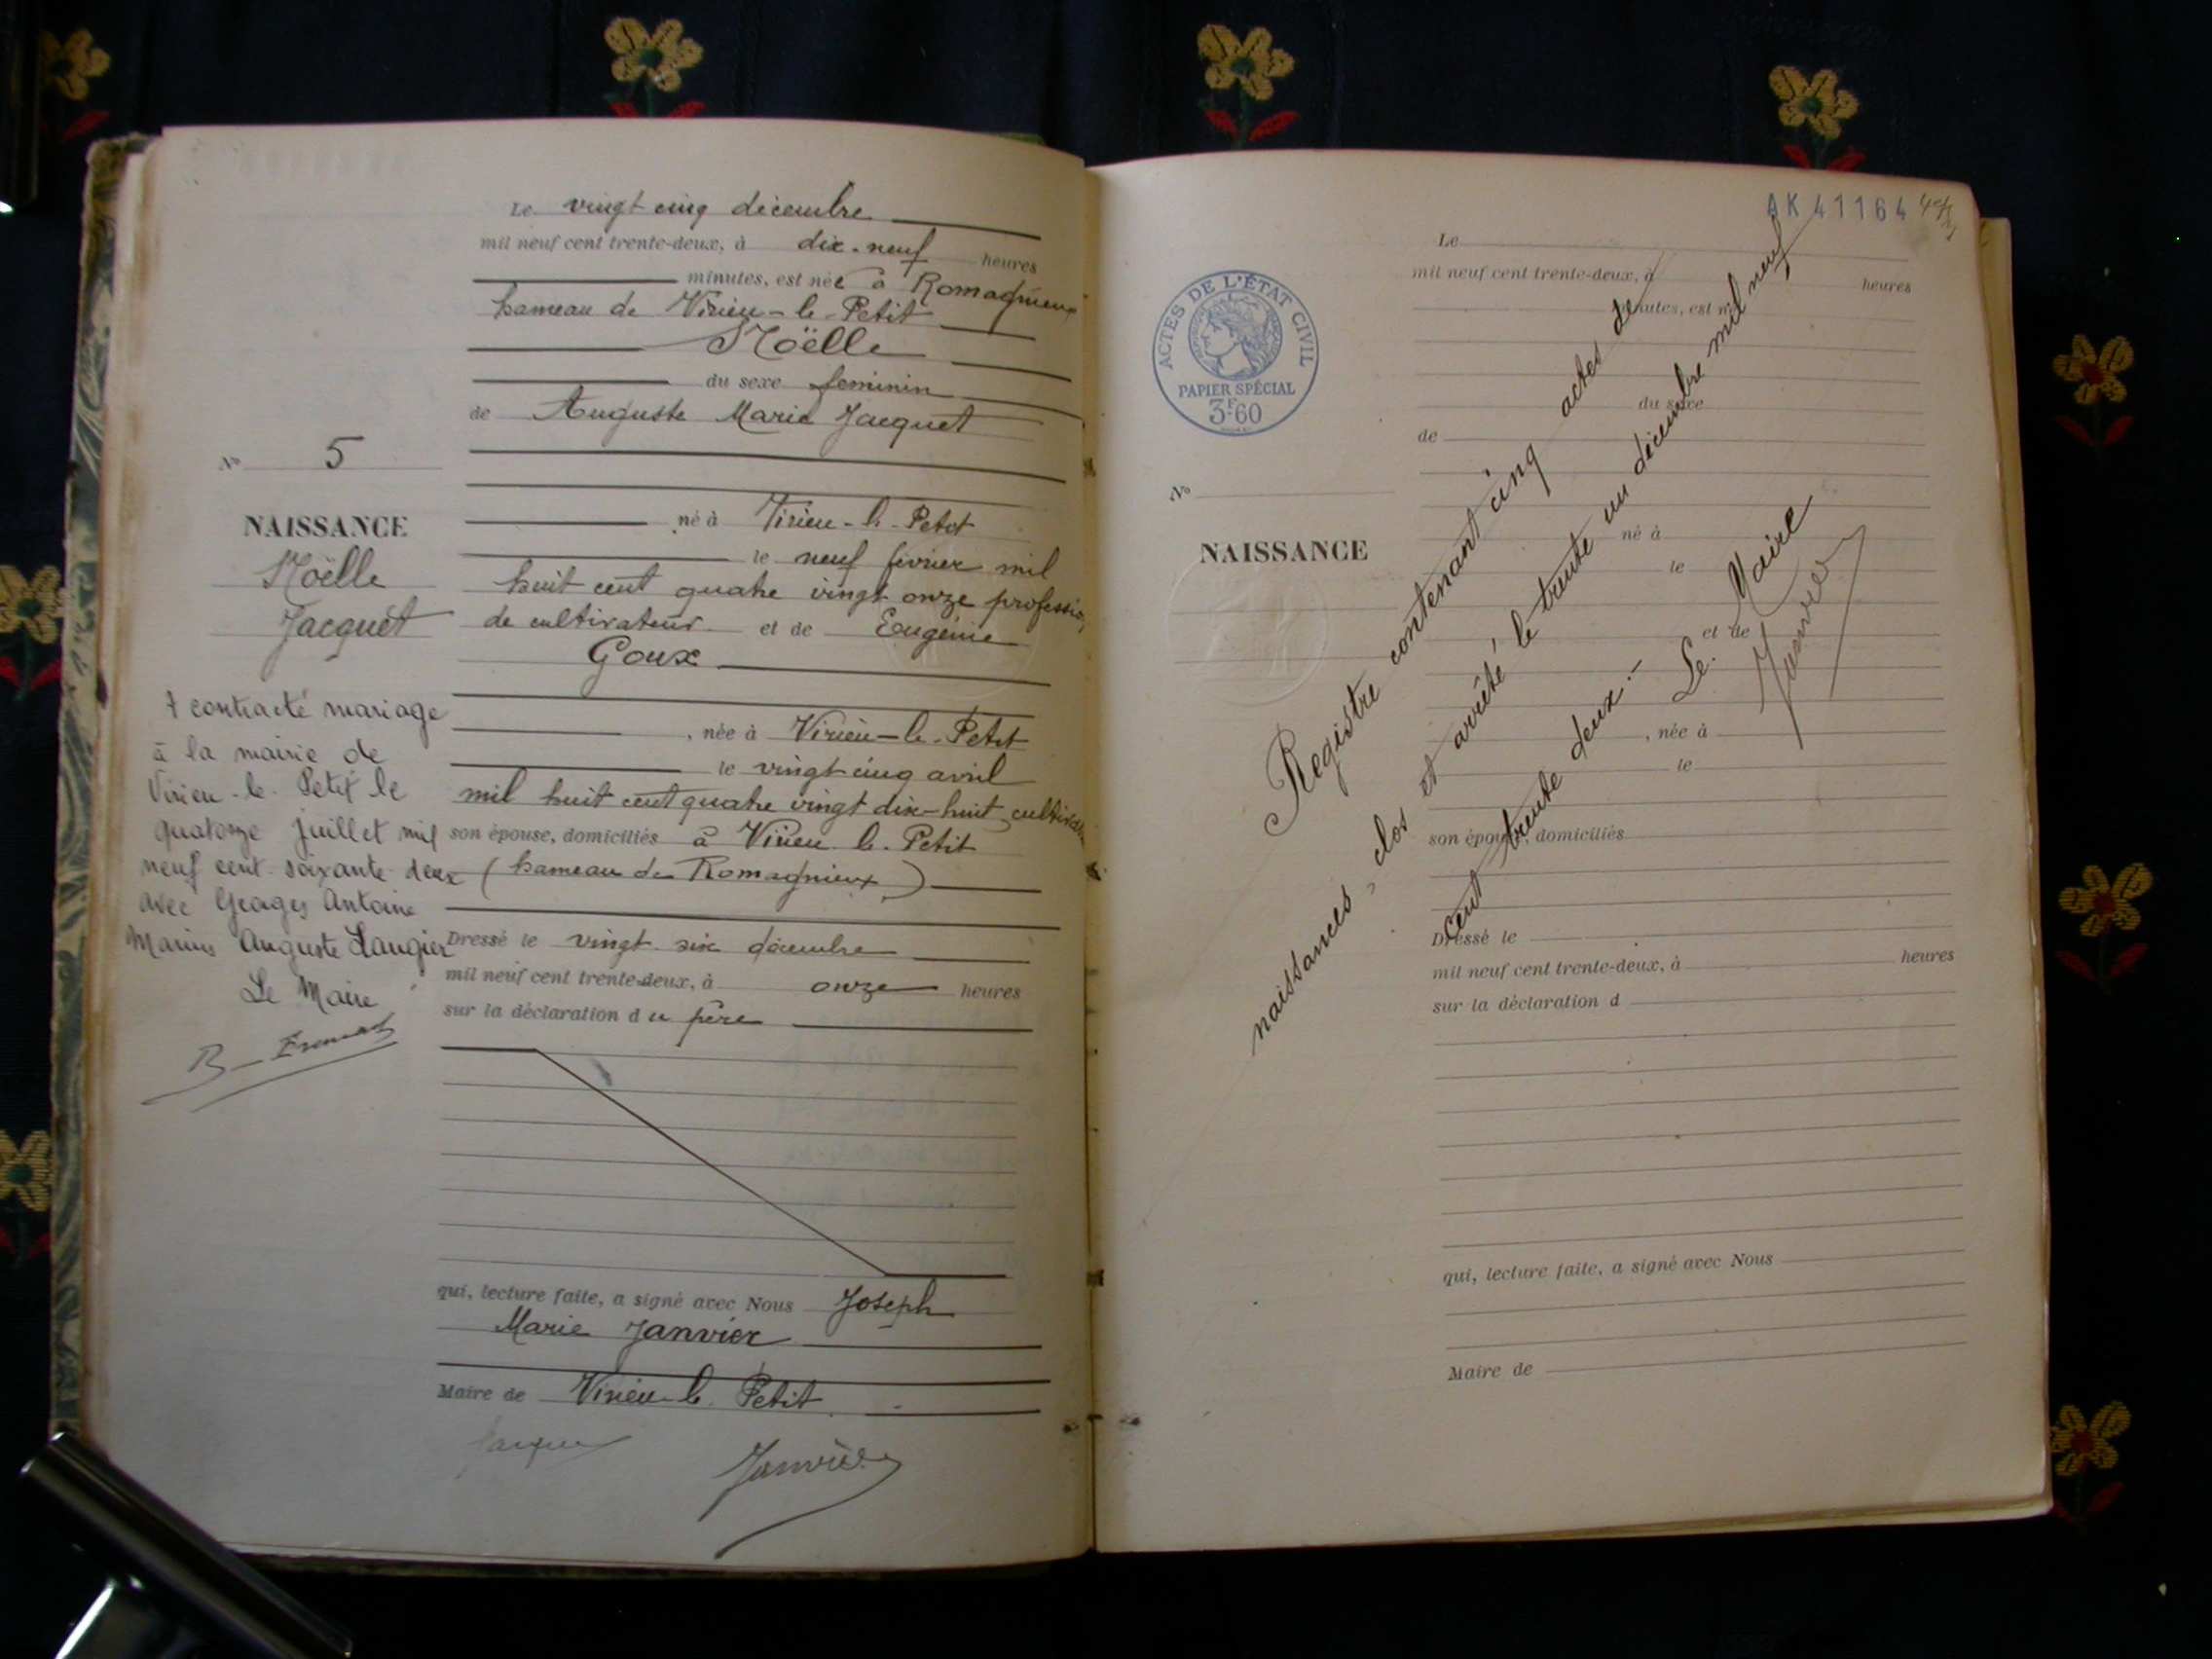 Le vingt cinq décembre
mil neuf cent trente-deux, à dix-neuf heures
minutes, est née à Romagnieux
hameau de Virieu-le-Petit
Noëlle
du sexe feminin
de Auguste Marie Jacquet
né à Virieu-le-Petit
le neuf février mil
huit cent quatre vingt onze profession
de cultivateur et de Eugénie
Goux
, née à Virieu-le-Petit
le vingt cinq avril
mil huit cent quatre vingt dix-huit
son épouse, domiciliés à Virieu-le-Petit
(hameau de Romagnieux)
Dressé le vingt-six décembre
mil neuf cent trente-deux, à onze heures
sur la déclaration du père
qui, lecture faite, a signé avec Nous Joseph
Marie Janvier
Maire de Virieu-le-Petit
Janvier
N° 5
NAISSANCE
Noëlle
Jacquet
A contracté mariage
à la mairie de
Virieu-le-Petit le
quatorze juillet mil
neuf cent soixante deux
avec Georges Antoine
Marius Auguste Laugier
Le Maire
AK 41164
ACTES DE L'ÉTAT CIVIL
PAPIER SPÉCIAL
3F60
N°
NAISSANCE
Le
mil neuf cent trente-deux, à heures
minutes, est né
du sexe
de
né à
le
et de
, née à
le
son épouse, domiciliés
Dressé le
mil neuf cent trente-deux, à heures
sur la déclaration d
qui, lecture faite, a signé avec Nous
Maire de
Registre contenant cinq actes de
naissances, clos et arrêté le trente un décembre mil neuf
cent trente deux.- Le Maire
Janvier